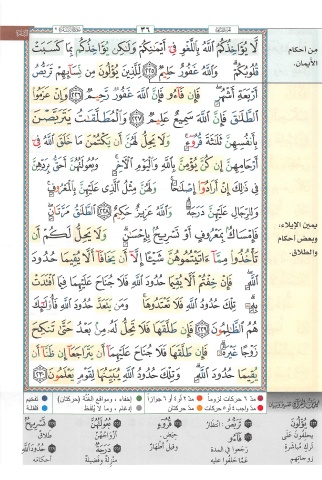 ٣٦
من أحكام
الأيمان.
لَّا يُؤَاخِذُكُمُ اللَّهُ بِاللَّغْوِ فِي أَيْمَانِكُمْ وَلَٰكِن يُؤَاخِذُكُم بِمَا كَسَبَتْ
قُلُوبُكُمْ وَاللَّهُ غَفُورٌ حَلِيمٌ ﴿٢٢٥﴾ لِّلَّذِينَ يُؤْلُونَ مِن نِّسَائِهِمْ تَرَبُّصُ
أَرْبَعَةِ أَشْهُرٍ فَإِن فَاءُو فَإِنَّ اللَّهَ غَفُورٌ رَّحِيمٌ ﴿٢٢٦﴾ وَإِنْ عَزَمُوا
الطَّلَاقَ فَإِنَّ اللَّهَ سَمِيعٌ عَلِيمٌ ﴿٢٢٧﴾ وَالْمُطَلَّقَاتُ يَتَرَبَّصْنَ
بِأَنفُسِهِنَّ ثَلَاثَةَ قُرُوءٍ وَلَا يَحِلُّ لَهُنَّ أَن يَكْتُمْنَ مَا خَلَقَ اللَّهُ فِي
أَرْحَامِهِنَّ إِن كُنَّ يُؤْمِنَّ بِاللَّهِ وَالْيَوْمِ الْآخِرِ وَبُعُولَتُهُنَّ أَحَقُّ بِرَدِّهِنَّ
فِي ذَٰلِكَ إِنْ أَرَادُوا إِصْلَاحًا وَلَهُنَّ مِثْلُ الَّذِي عَلَيْهِنَّ بِالْمَعْرُوفِ
وَلِلرِّجَالِ عَلَيْهِنَّ دَرَجَةٌ وَاللَّهُ عَزِيزٌ حَكِيمٌ ﴿٢٢٨﴾ الطَّلَاقُ مَرَّتَانِ
يمين الإيلاء،
وبعض أحكام
والطلاق.
فَإِمْسَاكٌ بِمَعْرُوفٍ أَوْ تَسْرِيحٌ بِإِحْسَانٍ وَلَا يَحِلُّ لَكُمْ أَن
تَأْخُذُوا مِمَّا آتَيْتُمُوهُنَّ شَيْئًا إِلَّا أَن يَخَافَا أَلَّا يُقِيمَا حُدُودَ
اللَّهِ فَإِنْ خِفْتُمْ أَلَّا يُقِيمَا حُدُودَ اللَّهِ فَلَا جُنَاحَ عَلَيْهِمَا فِيمَا افْتَدَتْ
بِهِ تِلْكَ حُدُودُ اللَّهِ فَلَا تَعْتَدُوهَا وَمَن يَتَعَدَّ حُدُودَ اللَّهِ فَأُولَٰئِكَ
هُمُ الظَّالِمُونَ ﴿٢٢٩﴾ فَإِن طَلَّقَهَا فَلَا تَحِلُّ لَهُ مِن بَعْدُ حَتَّىٰ تَنكِحَ
زَوْجًا غَيْرَهُ فَإِن طَلَّقَهَا فَلَا جُنَاحَ عَلَيْهِمَا أَن يَتَرَاجَعَا إِن ظَنَّا أَن
يُقِيمَا حُدُودَ اللَّهِ وَتِلْكَ حُدُودُ اللَّهِ يُبَيِّنُهَا لِقَوْمٍ يَعْلَمُونَ ﴿٢٣٠﴾
مد ٦ حركات لزوماً مد ٢ أو ٤ أو ٦ جوازاً إخفاء، ومواقع الغُنَّة (حركتان) تفخيم
مد واجب ٤ أو ٥ حركات مد حركتان إدغام، وما لا يُلفظ قلقلة
يُؤْلُونَ
يحلفون على
ترك مباشرة
زوجاتهم
تَرَبُّصُ: انتظار
فَاءُو
رجعوا في المدة
عمّا حلفوا عليه
قُرُوءٍ
حيض،
وقيل أطهار
بُعُولَتُهُنَّ
أزواجهن
دَرَجَةٌ
منزلة وفضيلة
تَسْرِيحٌ
طلاق
حُدُودُ اللَّهِ
أحكامه